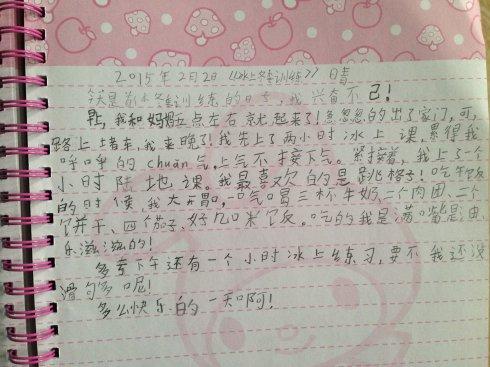 2015年2月2日《冰上冬训练》 晴
今天是首次冬训练的日子,我兴奋不已!
早上,我和妈妈五点左右就起来了!急忽忽的出了家门,可,
路上堵车,我来晚了!我先上了两小时冰上课,累得我
呼呼的chuǎn气,上气不接下气。紧接着,我上了一个
小时陆地课,我最喜欢的是跳格子!吃午饭
的时候,我大开胃口,一口气喝三杯牛奶、二个肉团、二个
饼干、四个茄子、好几口米饭。吃的我是满嘴是油,
乐滋滋的!
多亏下午还有一个小时冰上练习,要不我还没
滑够呢!
多么快乐的一天啊!